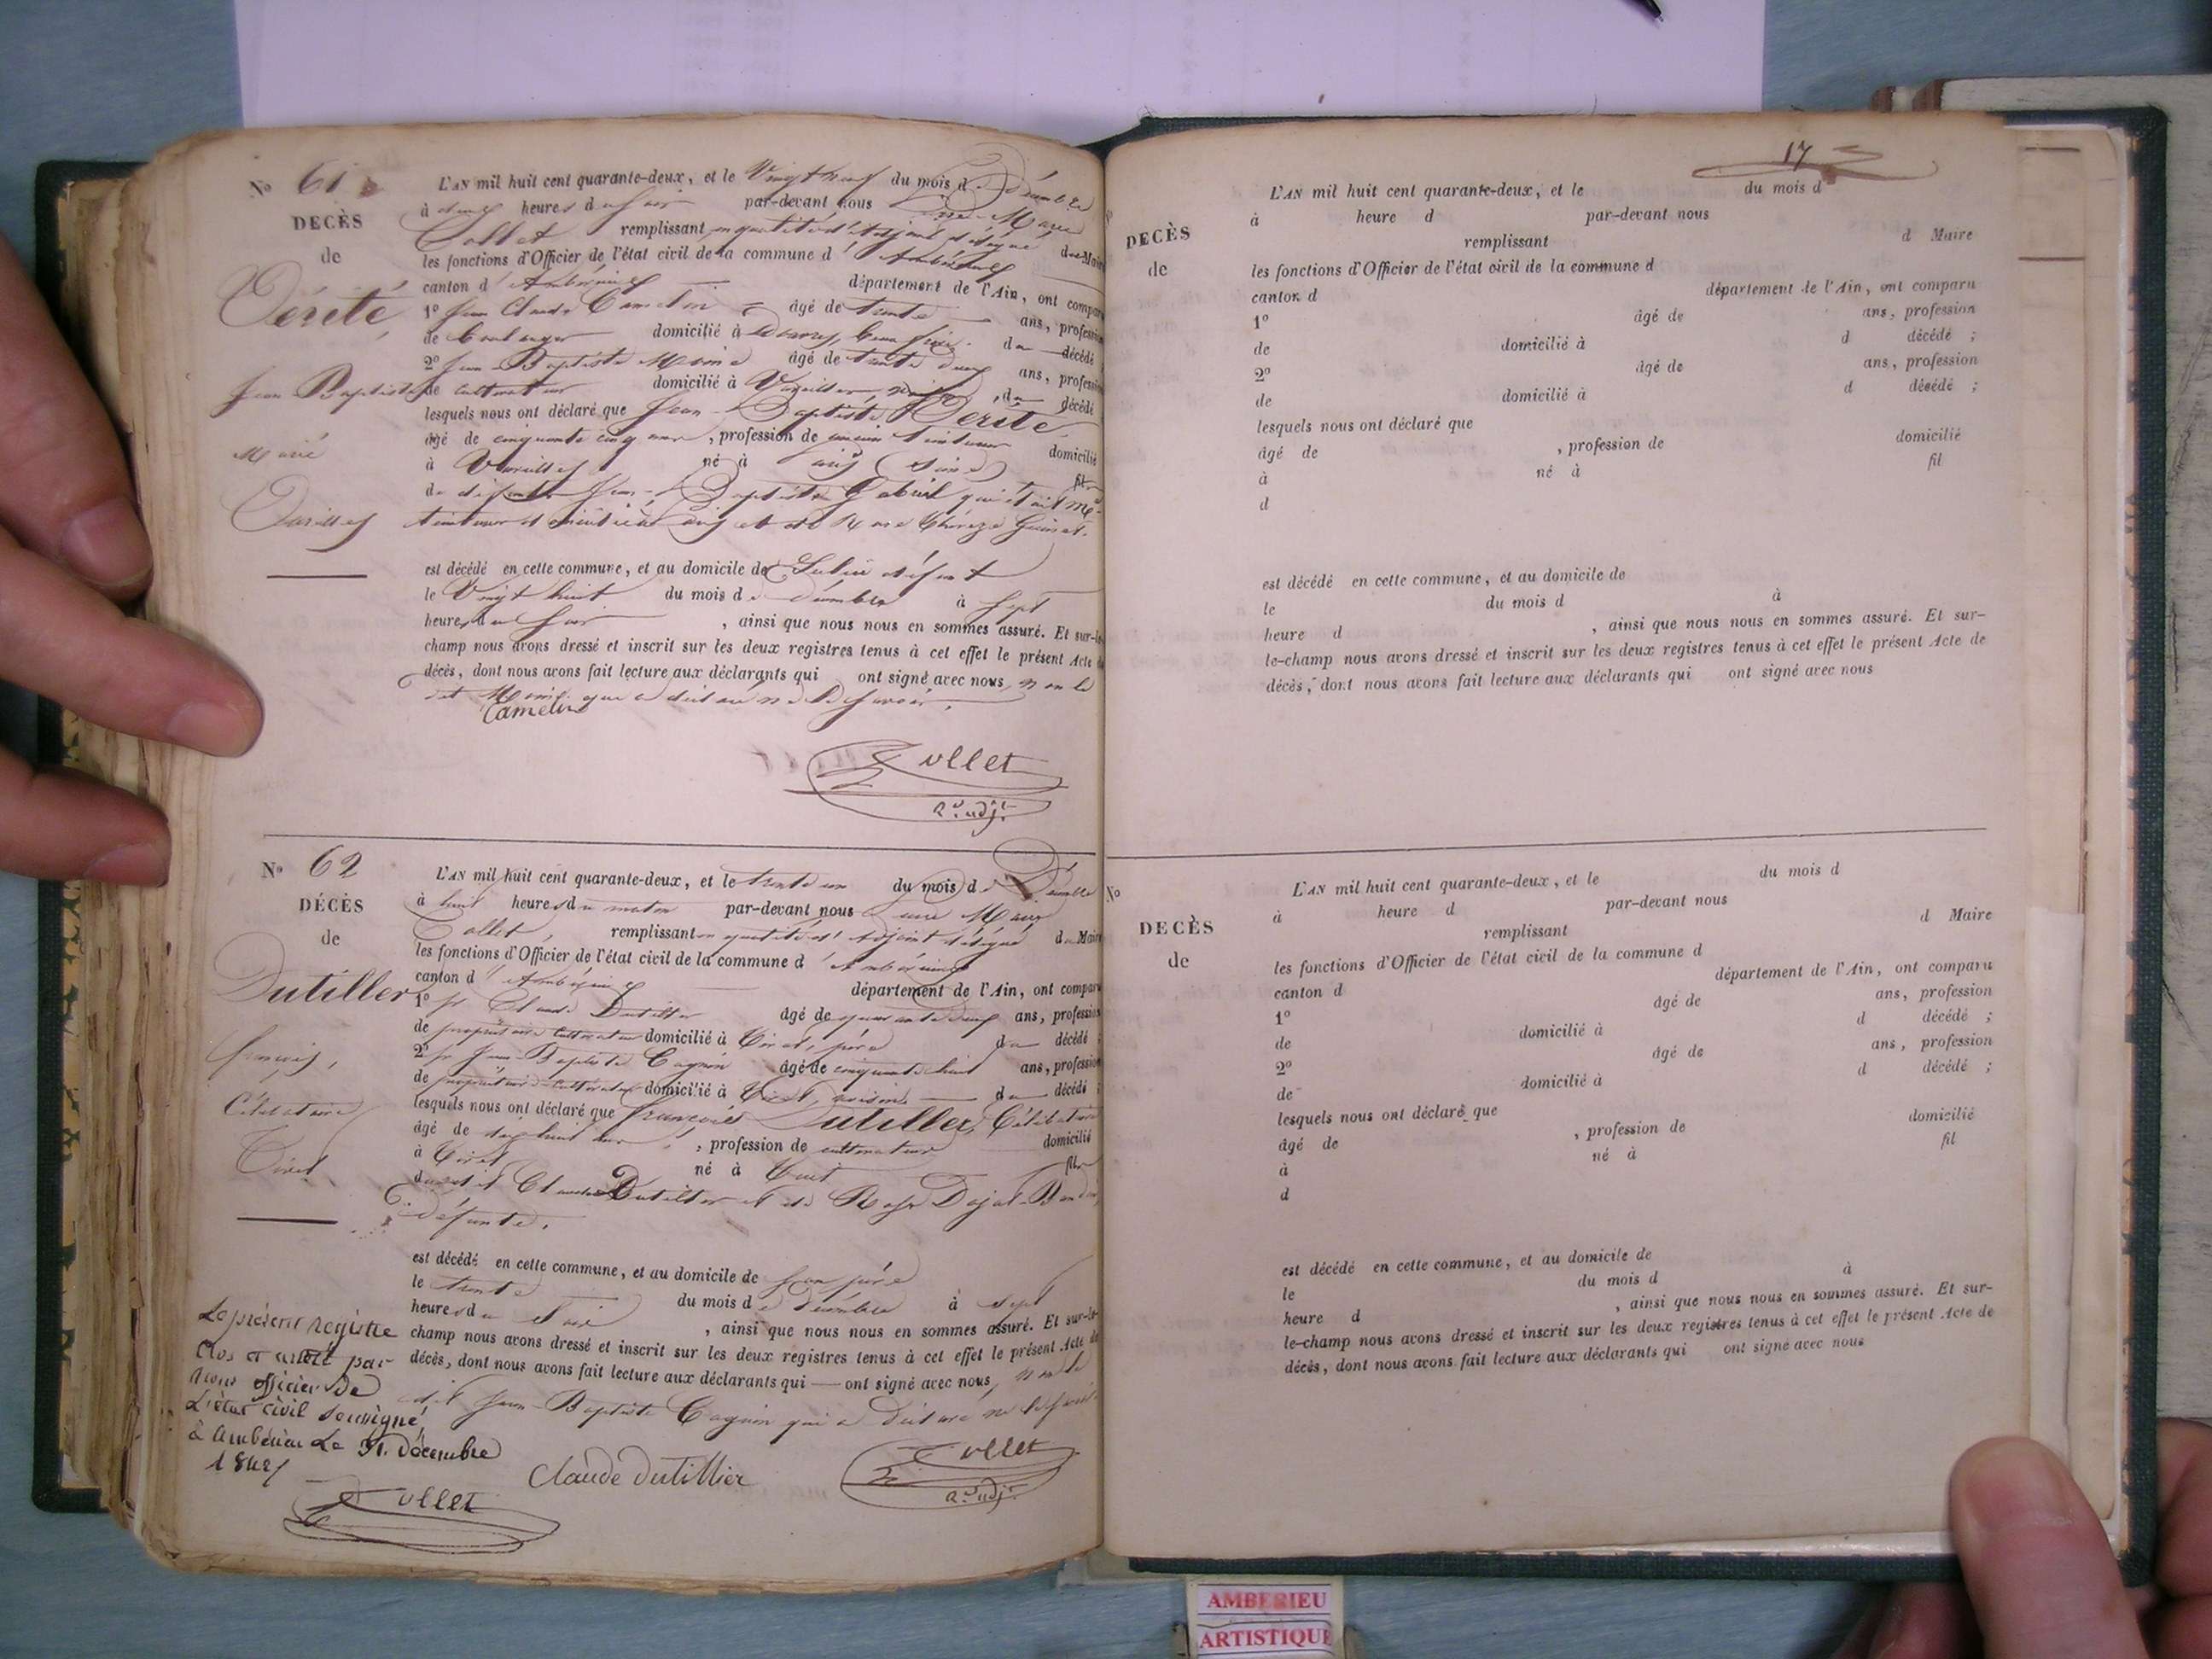 N° 61
DECÈS
de
Vérité,
Jean Baptiste
Marié
Varilles
L'AN mil huit cent quarante-deux, et le Vingt neuf du mois de Décembre
à deux heures du soir par-devant nous Marie
Collet remplissant en qualité d'adjoint délégué du Maire
les fonctions d'Officier de l'état civil de la commune d'Ambérieux
canton d'Ambérieux département de l'Ain, ont comparu
1° Jean Claude Camelin âgé de trente ans, profession
de boulanger domicilié à du décédé
2° Jean-Baptiste Monin âgé de trente deux ans, profession
de cultivateur domicilié à Vareilles, voisin, du décédé
lesquels nous ont déclaré que Jean-Baptiste Vérité
âgé de cinquante cinq ans, profession de ancien teinturier domicilié
à Vareilles né à (Seine) fils
de défunt Jean-Baptiste Gabriel qui était Me
teinturier et de Rose Thérèze
est décédé en cette commune, et au domicile de Celui défunt
le Vingt huit du mois de décembre à Sept
heures du soir, ainsi que nous nous en sommes assuré. Et sur-le-
champ nous avons dressé et inscrit sur les deux registres tenus à cet effet le présent Acte de
décès, dont nous avons fait lecture aux déclarants qui ont signé avec nous, non le
dit Monin que a déclaré ne le savoir.
Camelin
Collet
2d adjt
N° 62
DÉCÈS
de
Dutiller
françois,
Célibataire
Tiret
L'AN mil huit cent quarante-deux, et le trente un du mois de Décembre
à huit heures du matin par-devant nous Marie
Collet, remplissant en qualité d'adjoint délégué du Maire
les fonctions d'Officier de l'état civil de la commune d'Ambérieux
canton d'Ambérieux département de l'Ain, ont comparu
1° sr Claude Dutiller âgé de quarante neuf ans, profession
de propriétaire cultivateur domicilié à Tiret, père du décédé ;
2° sr Jean-Baptiste Cagnin âgé de cinquante huit ans, profession
de propriétaire-cultivateur domicilié à Tiret, voisin du décédé ;
lesquels nous ont déclaré que françois Dutiller, Célibataire
âgé de dix huit ans, profession de cultivateur domicilié
à Tiret né à Tiret fils
du dit Claude Dutiller et de Rose Dujat-
défunte.
est décédé en cette commune, et au domicile de son père
le trente du mois de décembre à sept
heures du soir, ainsi que nous nous en sommes assuré. Et sur-le-
champ nous avons dressé et inscrit sur les deux registres tenus à cet effet le présent Acte de
décès, dont nous avons fait lecture aux déclarants qui — ont signé avec nous, non le
dit Jean-Baptiste Cagnin qui a déclaré ne le savoir.
Claude Dutillier
Collet
2d adjt
Le présent registre
Clos et arrêté par
nous officier de
L'état civil soussigné
à Ambérieu Le 31. Décembre
1842
Collet
17
DECÈS
de
L'AN mil huit cent quarante-deux, et le du mois d
à heure d par-devant nous
remplissant d Maire
les fonctions d'Officier de l'état civil de la commune d
canton d département de l'Ain, ont comparu
1° âgé de ans, profession
de domicilié à d décédé ;
2° âgé de ans, profession
de domicilié à d décédé ;
lesquels nous ont déclaré que
âgé de , profession de domicilié
à né à fil
d
est décédé en cette commune, et au domicile de
le du mois d à
heure d , ainsi que nous nous en sommes assuré. Et sur-
le-champ nous avons dressé et inscrit sur les deux registres tenus à cet effet le présent Acte de
décès, dont nous avons fait lecture aux déclarants qui ont signé avec nous
N°
DECÈS
de
L'AN mil huit cent quarante-deux, et le du mois d
à heure d par-devant nous
remplissant d Maire
les fonctions d'Officier de l'état civil de la commune d
canton d département de l'Ain, ont comparu
1° âgé de ans, profession
de domicilié à d décédé ;
2° âgé de ans, profession
de domicilié à d décédé ;
lesquels nous ont déclaré que
âgé de , profession de domicilié
à né à fil
d
est décédé en cette commune, et au domicile de
le du mois d à
heure d , ainsi que nous nous en sommes assuré. Et sur-
le-champ nous avons dressé et inscrit sur les deux registres tenus à cet effet le présent Acte de
décès, dont nous avons fait lecture aux déclarants qui ont signé avec nous
AMBERIEU
ARTISTIQUE